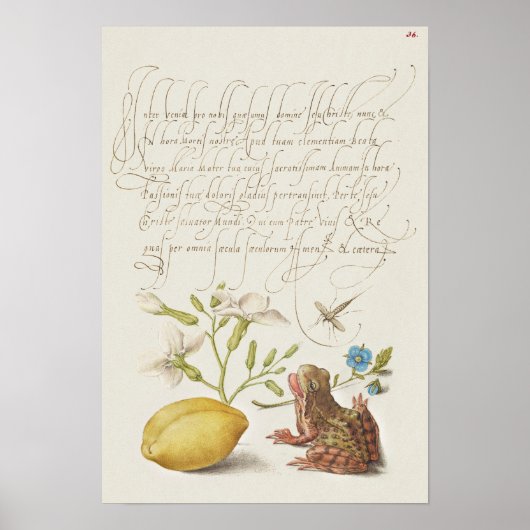 36.
nter Veniat pro nobi quæsumus domine Jesu Christe nunc &
N hora Mortis nostre apud tuam clementiam Beata
Virgo Maria Mater tua cuius sacratissimam Animam in hora
Passionis tuæ doloris gladius pertransivit. Per te Jesu
Christe salvator Mundi. Qui cum Patre vivis & Re
gnas per omnia sæcula sæculorum Amen & cætera